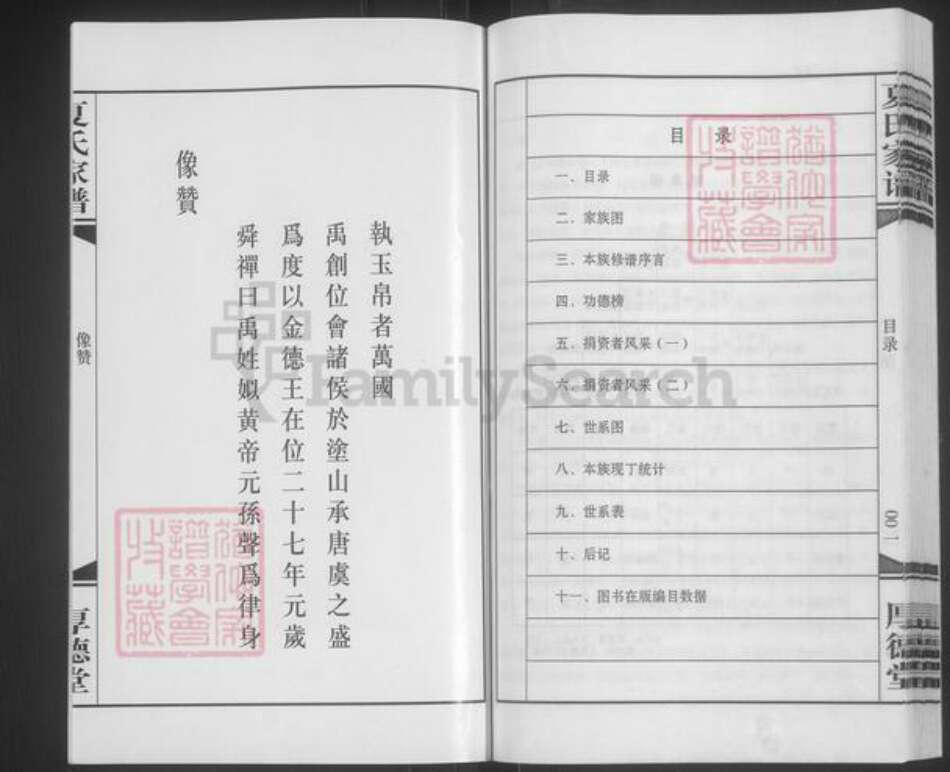 夏氏家谱
目录
一、目录
二、家族图
三、本族修谱序言
四、功德榜
五、捐资者风采（一）
六、捐资者风采（二）
七、世系图
八、本族现丁统计
九、世系表
十、后记
十一、图书在版编目数据
目录
00一
厚德堂
像贊
舜禪曰禹姓姒黄帝元孫聲爲律身
爲度以金德王在位二十七年元歲
禹創位會諸侯於塗山承唐虞之盛
執玉帛者萬國
夏氏家谱
像赞
厚德堂
FamilySearch